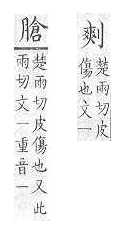 楚兩切皮
傷也文一
楚兩切皮傷也又此
兩切文一重音一